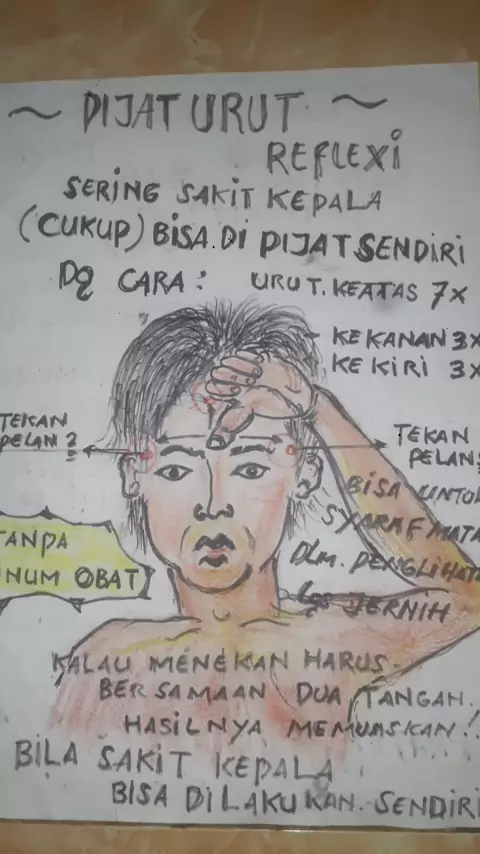 ~ PIJAT URUT ~
REFLEXI
SERING SAKIT KEPALA
(CUKUP) BISA DI PIJAT SENDIRI
DG CARA : URUT. KEATAS 7X
- KE KANAN 3X
KE KIRI 3X
TEKAN
PELAN 2
TEKAN
PELAN
BISA UNTU
SYARAF MATA
DLM. PENGLIHAT
JERNIH
TANPA
INUM OBAT
KALAU MENEKAN HARUS -
BERSAMAAN DUA TANGAN.
HASILNYA MEMUASKAN !!
BILA SAKIT KEPALA
BISA DILAKUKAN. SENDIRI